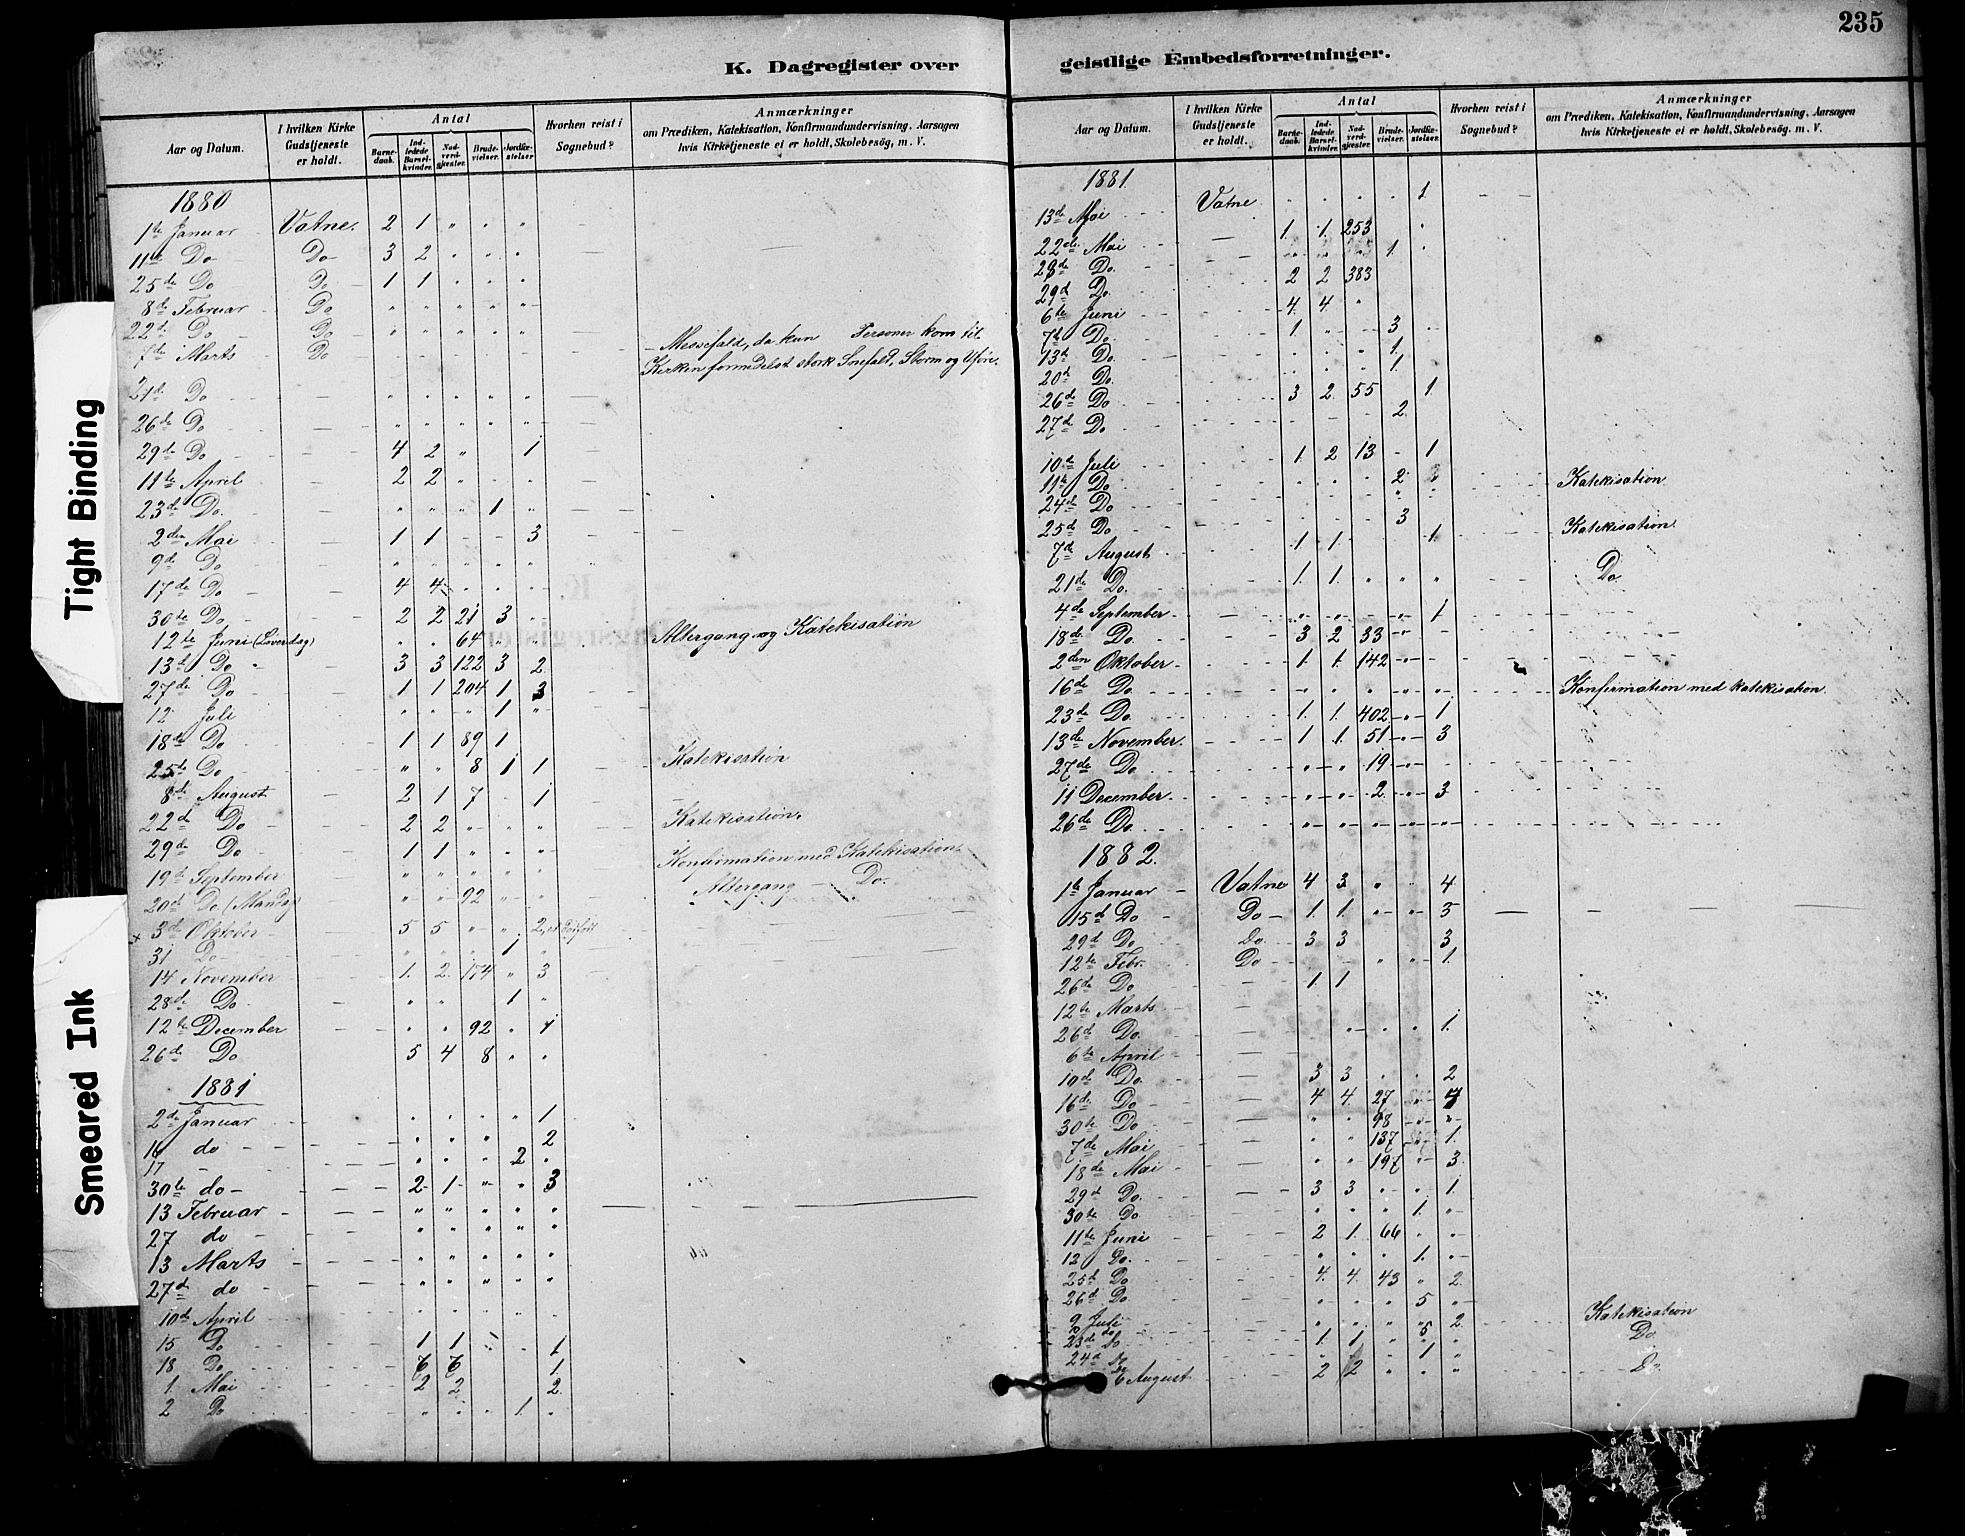 235
K. Dagregister over geistlige Embedsforretninger.
Tight Binding
Smeared Ink
Aar og Datum. I hvilken Kirke Gudstjeneste er holdt. Antal Barnedaab. Indledede Barselkvinder. Nadverdgjæster. Brudevielser. Jordfæstelser. Hvorhen reist i Sognebud? Anmærkninger om Prædiken, Katekisation, Konfirmandundervisning, Aarsagen hvis Kirketjeneste ei er holdt, Skolebesög, m. V.
1880
1te Januar Vatne. 2 1 " " "
11te Do Do 3 2 " " "
25de Do Do 1 1 " " "
8de Februar Do " " " " "
22d Do Do " " " " "
7de Marts Do Messefald, da kun Personer kom til
Kirken formedelst stærk Snefald, Storm og Uföre.
21d Do " " " " "
26de Do " " " " "
29de Do 4 2 " 1
11te April 2 2 " " "
23de Do. " " " 1 "
2den Mai 1 1 - - 3
9d Do " " " " "
17de Do 4 4 " " "
30te Do 2 2 21 3 "
12te Juni (Löverdag) " " 64 " " Altergang og Katekisation
13d Do 3 3 122 3 2
27de Do 1 1 204 1 3
12 Juli " " " 1 "
18de Do 1 1 89 1
25de Do " " 8 1 1 Katekisation
8de August 2 1 7 1
22de Do 2 2 " " " Katekisation.
29de Do 1 1 " " "
19d September " " " " " Konfirmation med Katekisation.
20d Do (Mandag) " " 92 " " Altergang - Do.
3de Oktober 5 5 " " 2,
31 Do " " " 1 "
14 November 1. 2 154 " 3
28de Do " " 1 "
12te December " " 92 " 1
26de Do 5 4 8 " "
1881
2de Januar " " " " 1
16 do " " " 2
17 - " " " 2 "
30te do - 2 1 " " 3
13 Februar " " " " "
27 do " " " " "
13 Marts " " " " "
27d do " " " " "
10d April " " " " "
15 Do 1 1 " 1
18 Do 6 6 1.
1. Mai 2 2 2.
2 Do " " " 1. "
Aar og Datum. I hvilken Kirke Gudstjeneste er holdt. Antal Barnedaab. Indledede Barselkvinder. Nadverdgjæster. Brudevielser. Jordfæstelser. Hvorhen reist i Sognebud? Anmærkninger om Prædiken, Katekisation, Konfirmandundervisning, Aarsagen hvis Kirketjeneste ei er holdt, Skolebesög. m. V.
1881.
13de Mai Vatne " " " " 1
22de Mai 1. 1. 253 "
28de Do. " " " 1. "
29d Do. 2 2 383
6te Juni 4. 4. "
7de Do. 1. " " 3
13d Do. " " " 1.
20d Do. " " " 1
26de Do 3 2 55 1.
27d Do - - - 2
10d Juli 1. 2 13 - 1
11te Do " " " 2 2 Katekisation
24de Do " " " " "
25d Do " " " 3 Katekisation.
7de August 1. 1. 1.
21de Do. 1. 1. " " " Do
4de September " " " " 1
18de Do. 3 2 33 "
2den Oktober 1. 1. 142 "
16de Do. " " " " " Konfirmation med katekisation.
23de Do. 1. 1. 402 " 1
13de November. 1 1. 51 " 3
27de Do " " 19 "
11 December " " 2 " 3
26de Do. " " " " "
1882.
1te Januar Vatne 4 3 " " 4
15d Do Do 1. 1. " " 3
29d Do Do 3 3 3
12te Febr. Do " " 1.
26de Do 1 1
12te Marts
26d Do. " " " 1.
6te April
10d Do. 3 3 " " 2
16de Do 4 4. 27 " 4
30te Do " " 98 " "
7de Mai " " 137 " 1.
18de Mai " " 197 " 3
29d Do. 3 3 " " 1.
30te Do " " " 1. "
11te Juni 2 1. 66 " "
12 Do. " " " 1. "
25d Do 4. 4. 43 " 2
26d Do " " " 5 "
9 Juli " " " " 2 Katekisation
10 do 5
23de Do 1. 1 " " " Do
24d Do " " " 1 "
6 August 2 2 " " " Do